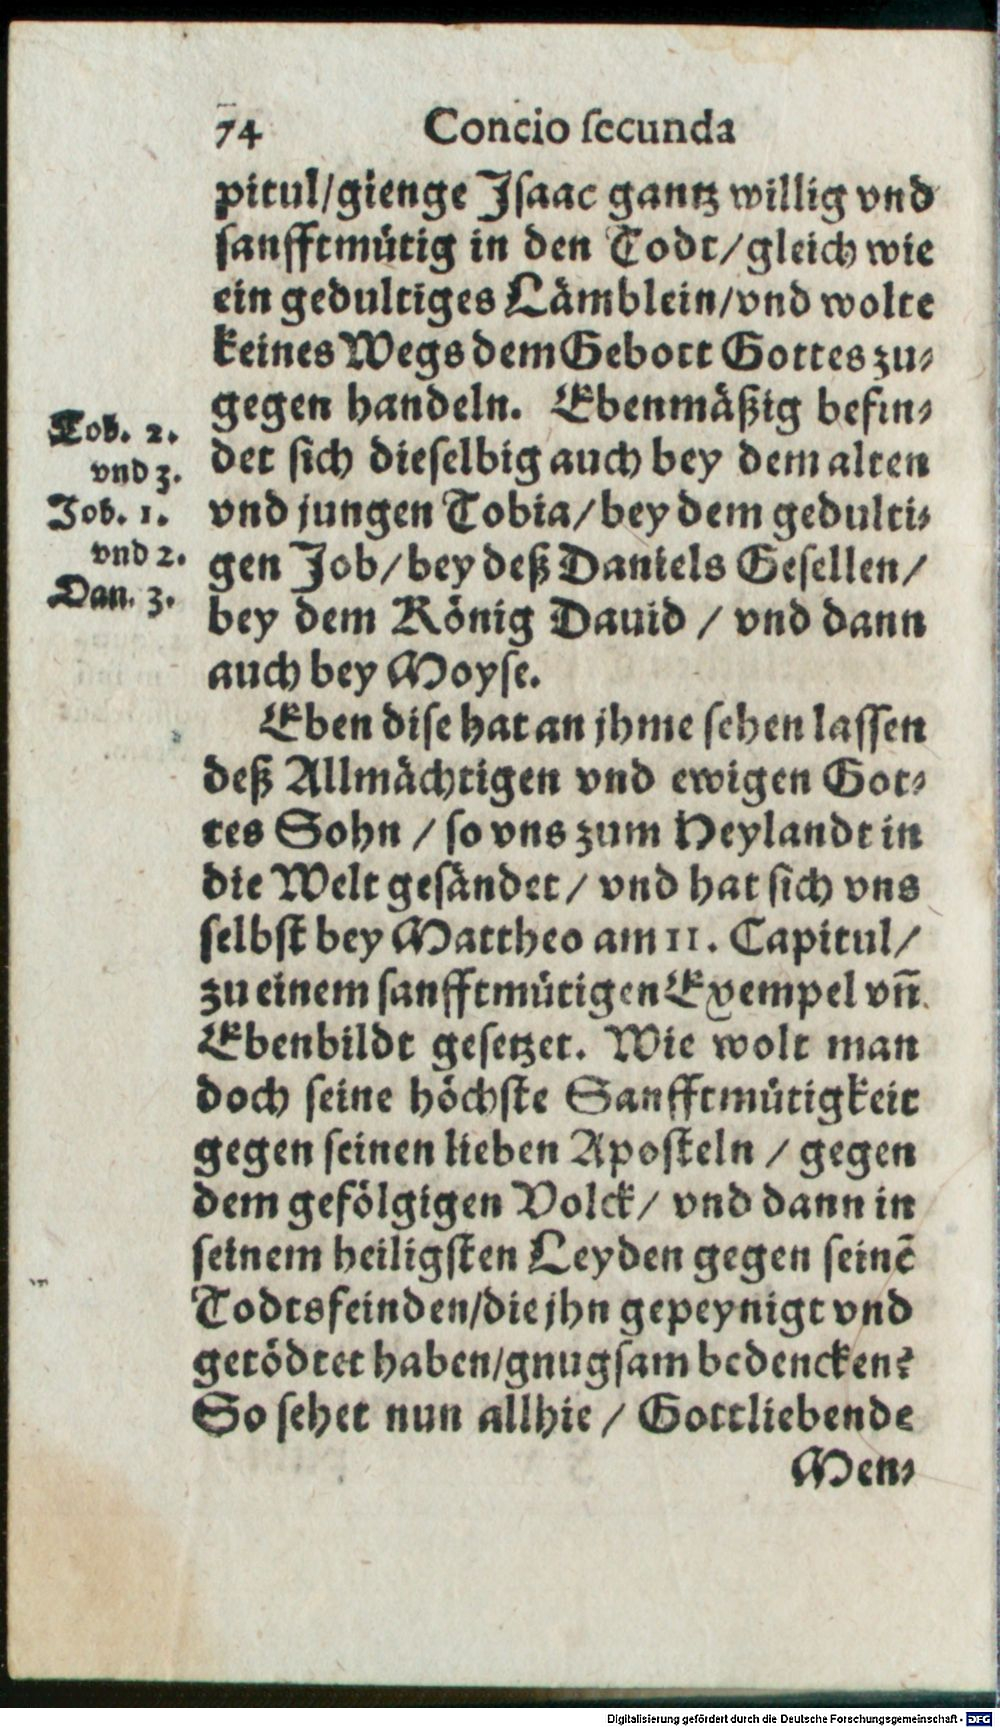 74 Concio secunda
pitul/gienge Isaac gantz willig vnd
sanfftmütig in den Todt/gleich wie
ein gedultiges Lämblein/vnd wolte
keines Wegs dem Gebott Gottes zu-
gegen handeln. Ebenmäßig befin-
det sich dieselbig auch bey dem alten
vnd jungen Tobia/bey dem gedulti-
gen Job/bey deß Daniels Gesellen/
bey dem König Dauid / vnd dann
auch bey Moyse.
Tob. 2.
vnd 3.
Job. 1.
vnd 2.
Dan. 3.
Eben dise hat an jhme sehen lassen
deß Allmächtigen vnd ewigen Got-
tes Sohn / so vns zum Heylandt in
die Welt gesändet / vnd hat sich vns
selbst bey Mattheo am 11. Capitul/
zu einem sanfftmütigen Exempel vn̄
Ebenbildt gesetzet. Wie wolt man
doch seine höchste Sanfftmütigkeit
gegen seinen lieben Aposteln / gegen
dem gefölgigen Volck/ vnd dann in
seinem heiligsten Leyden gegen seinē
Todtsfeinden/die jhn gepeynigt vnd
getödtet haben/gnugsam bedencken?
So sehet nun allhie / Gottliebende
Men-
Digitalisierung gefördert durch die Deutsche Forschungsgemeinschaft - DFG